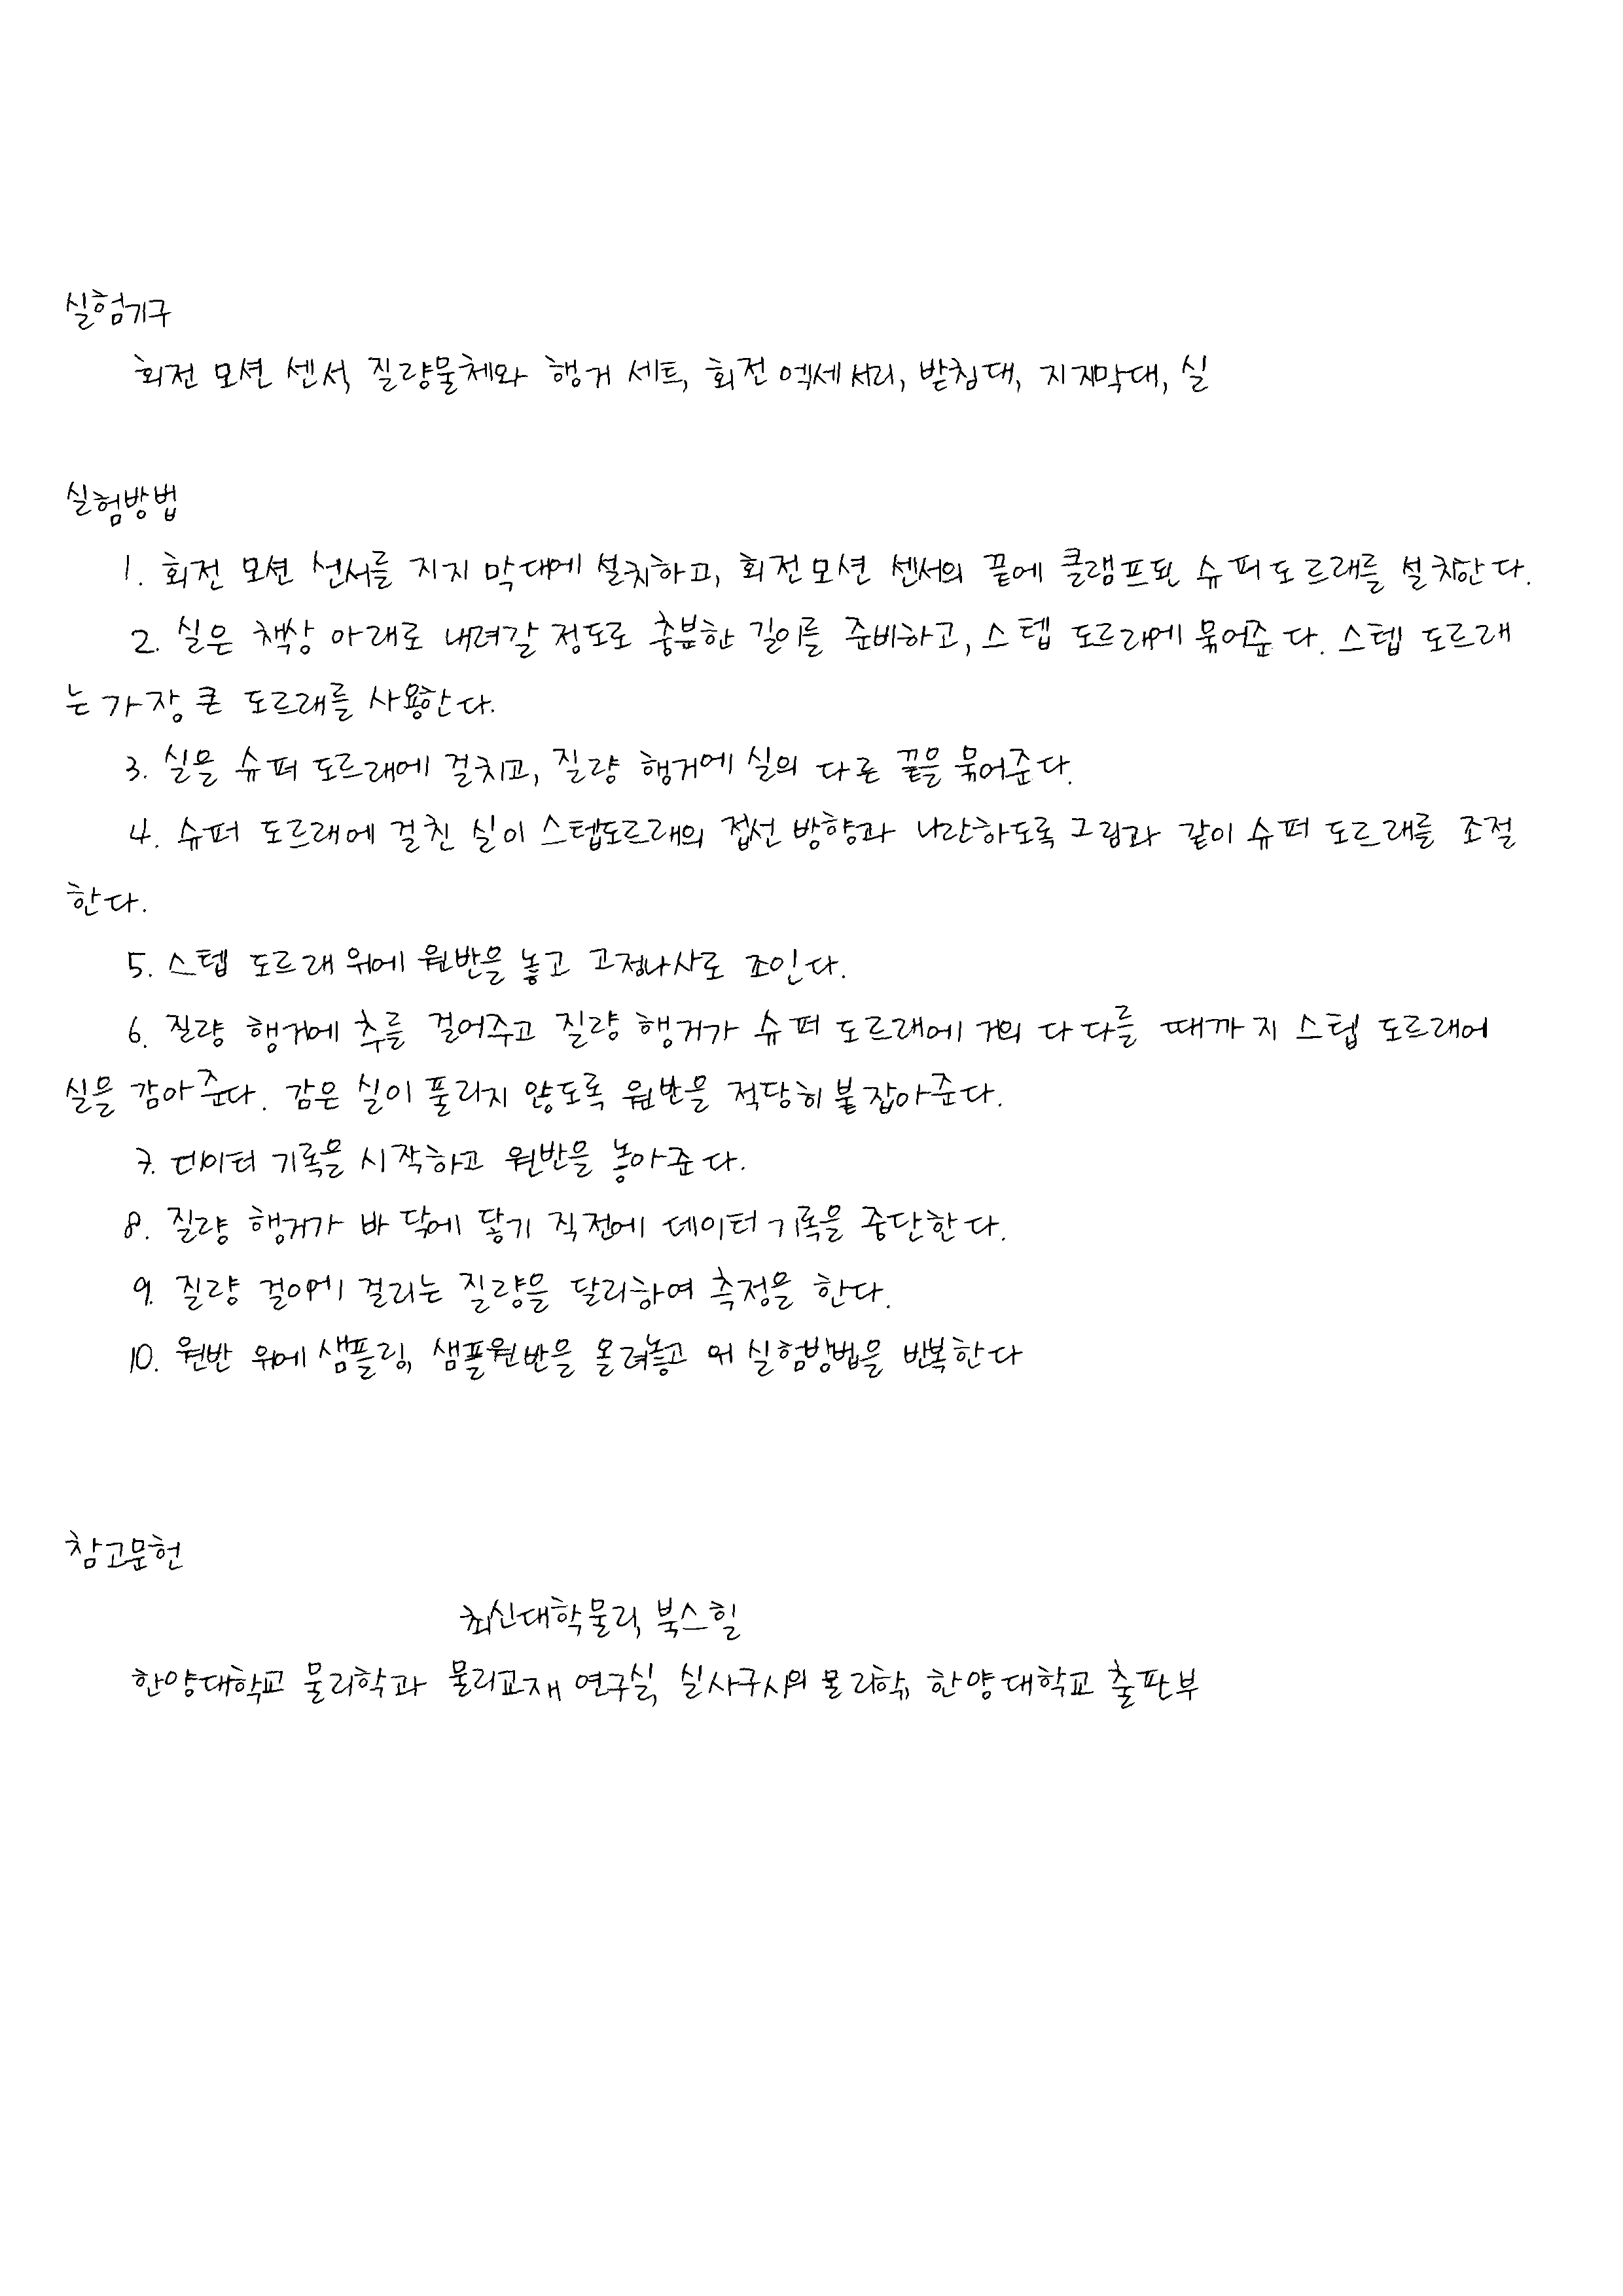 실험기구
회전 모션 센서, 질량물체와 행거 세트, 회전 엑세서리, 받침대, 지지막대, 실
실험방법
1. 회전 모션 선서를 지지 막대에 설치하고, 회전 모션 센서의 끝에 클램프된 슈퍼 도르래를 설치한다.
2. 실은 책상 아래로 내려갈 정도로 충분한 길이를 준비하고, 스텝 도르래에 묶어준다. 스텝 도르래
는 가장 큰 도르래를 사용한다.
3. 실을 슈퍼 도르래에 걸치고, 질량 행거에 실의 다른 끝을 묶어준다.
4. 슈퍼 도르래에 걸친 실이 스텝도르래의 접선 방향과 나란하도록 그림과 같이 슈퍼 도르래를 조절
한다.
5. 스텝 도르래 위에 원반을 놓고 고정나사로 조인다.
6. 질량 행거에 추를 걸어주고 질량 행거가 슈퍼 도르래에 거의 다다를 때까지 스텝 도르래에
실을 감아준다. 감은 실이 풀리지 않도록 원반을 적당히 붙잡아준다.
7. 데이터 기록을 시작하고 원반을 놓아준다.
8. 질량 행거가 바닥에 닿기 직전에 데이터 기록을 중단한다.
9. 질량 걸이에 걸리는 질량을 달리하여 측정을 한다.
10. 원반 위에 샘플링, 샘플원반을 올려놓고 위 실험방법을 반복한다
참고문헌
최신대학물리, 북스힐
한양대학교 물리학과 물리교재 연구실, 실사구시의 물리학, 한양대학교 출판부